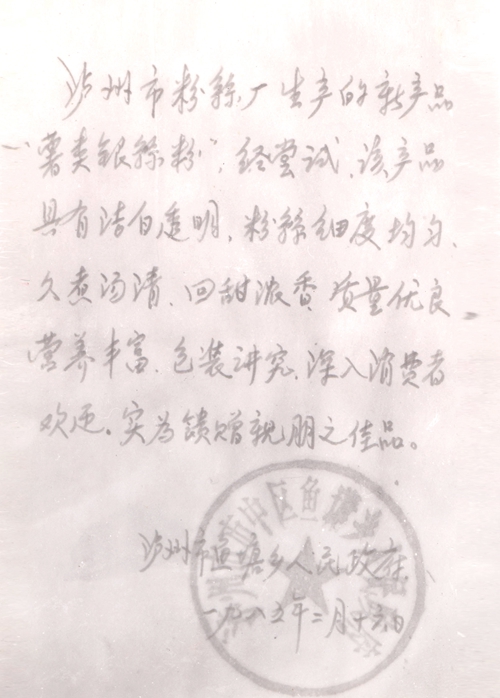 泸州市粉絲厂生产的新产品
“薯类银絲粉”，经尝试，该产品
具有洁白透明、粉絲细度均匀、
久煮汤清、回甜浓香、质量优良、
营养丰富、包装讲究、深入消费者
欢迎。实为馈赠亲朋之佳品。
泸州市鱼塘乡人民政府
一九八五年二月十六日
市中区鱼塘